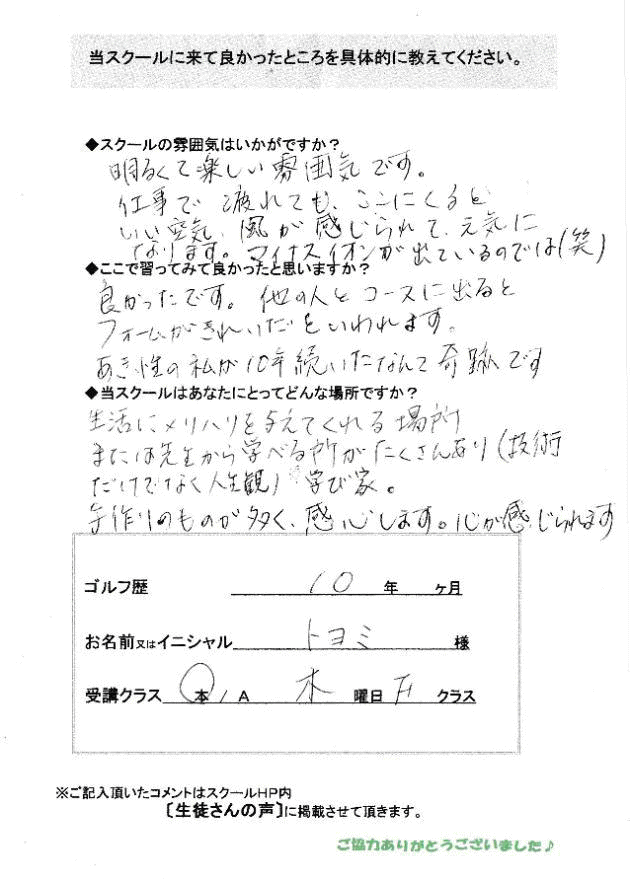 当スクールに来て良かったところを具体的に教えてください。
◆スクールの雰囲気はいかがですか？
明るくて楽しい雰囲気です。
仕事で疲れても、ここにくると
いい空気、風が感じられて、元気に
なります。マイナスイオンが出ているのでは(笑)
◆ここで習ってみて良かったと思いますか？
良かったです。他の人とコースに出ると
フォームがきれいだといわれます。
あき性の私が10年続いたなんて奇跡です
◆当スクールはあなたにとってどんな場所ですか？
生活にメリハリを与えてくれる場所
または先生から学べる所がたくさんあり(技術
だけでなく人生観) 学び家。
手作りのものが多く、感心します。心が感じられます
ゴルフ歴 10 年 ヶ月
お名前又はイニシャル トヨミ 様
受講クラス 本 / A 木 曜日 クラス
※ご記入頂いたコメントはスクールHP内
〔生徒さんの声〕に掲載させて頂きます。
ご協力ありがとうございました♪